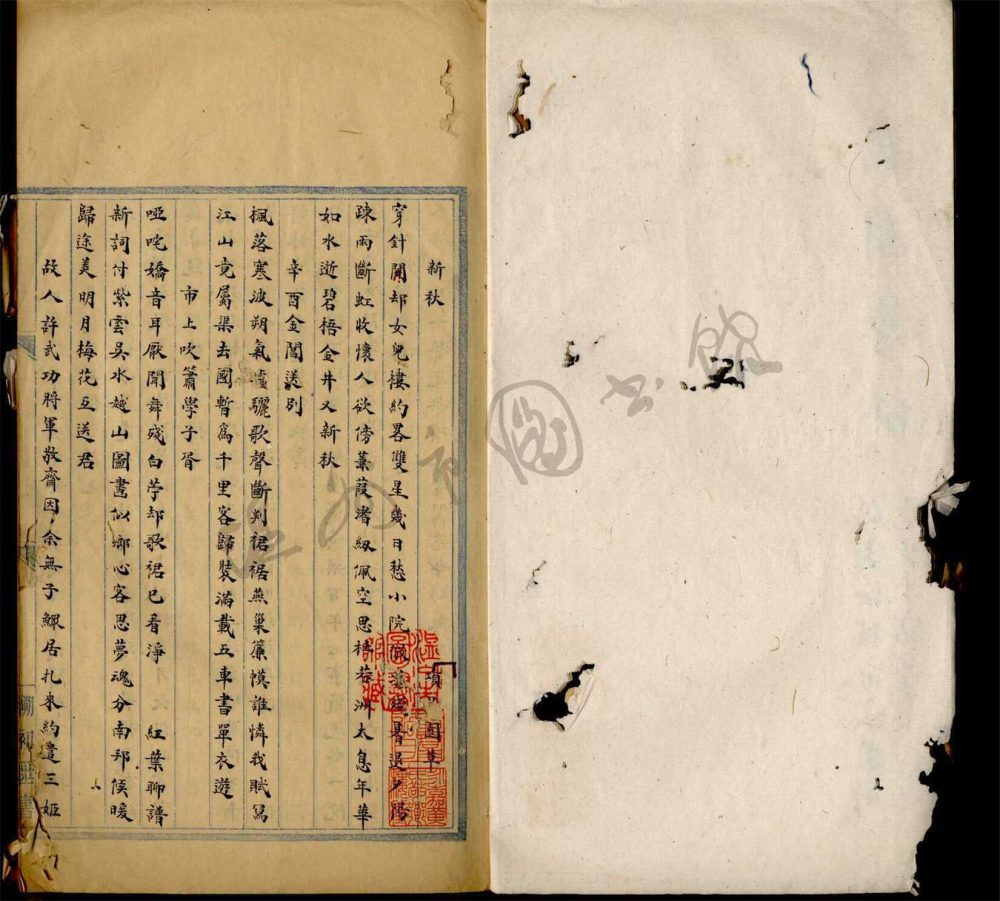 新秋
園草
穿針閒却女兒樓約畧雙星幾日愁小院暑退夕陽
疎雨斷虹收懷人欲傍蒹葭渚紉佩空思杜若洲太息年華
如水逝碧梧金井又新秋
辛酉金閶送別
楓落寒波朔氣噓驪歌聲斷判裙裾燕巢簾幙誰憐我賦寫
江山竟屬渠去國暫為千里客歸裝滿載五車書單衣遊
市上吹簫學子胥
啞咤嬌音耳厭聞舞殘白苧却歌裙已看淨 紅葉聊譜
新詞付紫雲吳水越山圖畫似鄉心客思夢魂分南邦候暖
歸途美明月梅花互送君
故人許武功將軍敬齋因余無子鰥居札來約遣三姬